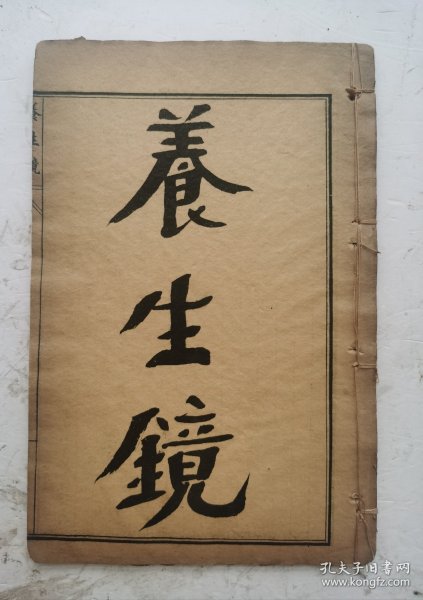 養生鏡
養生鏡
孔夫子旧书网
www.kongfz.com